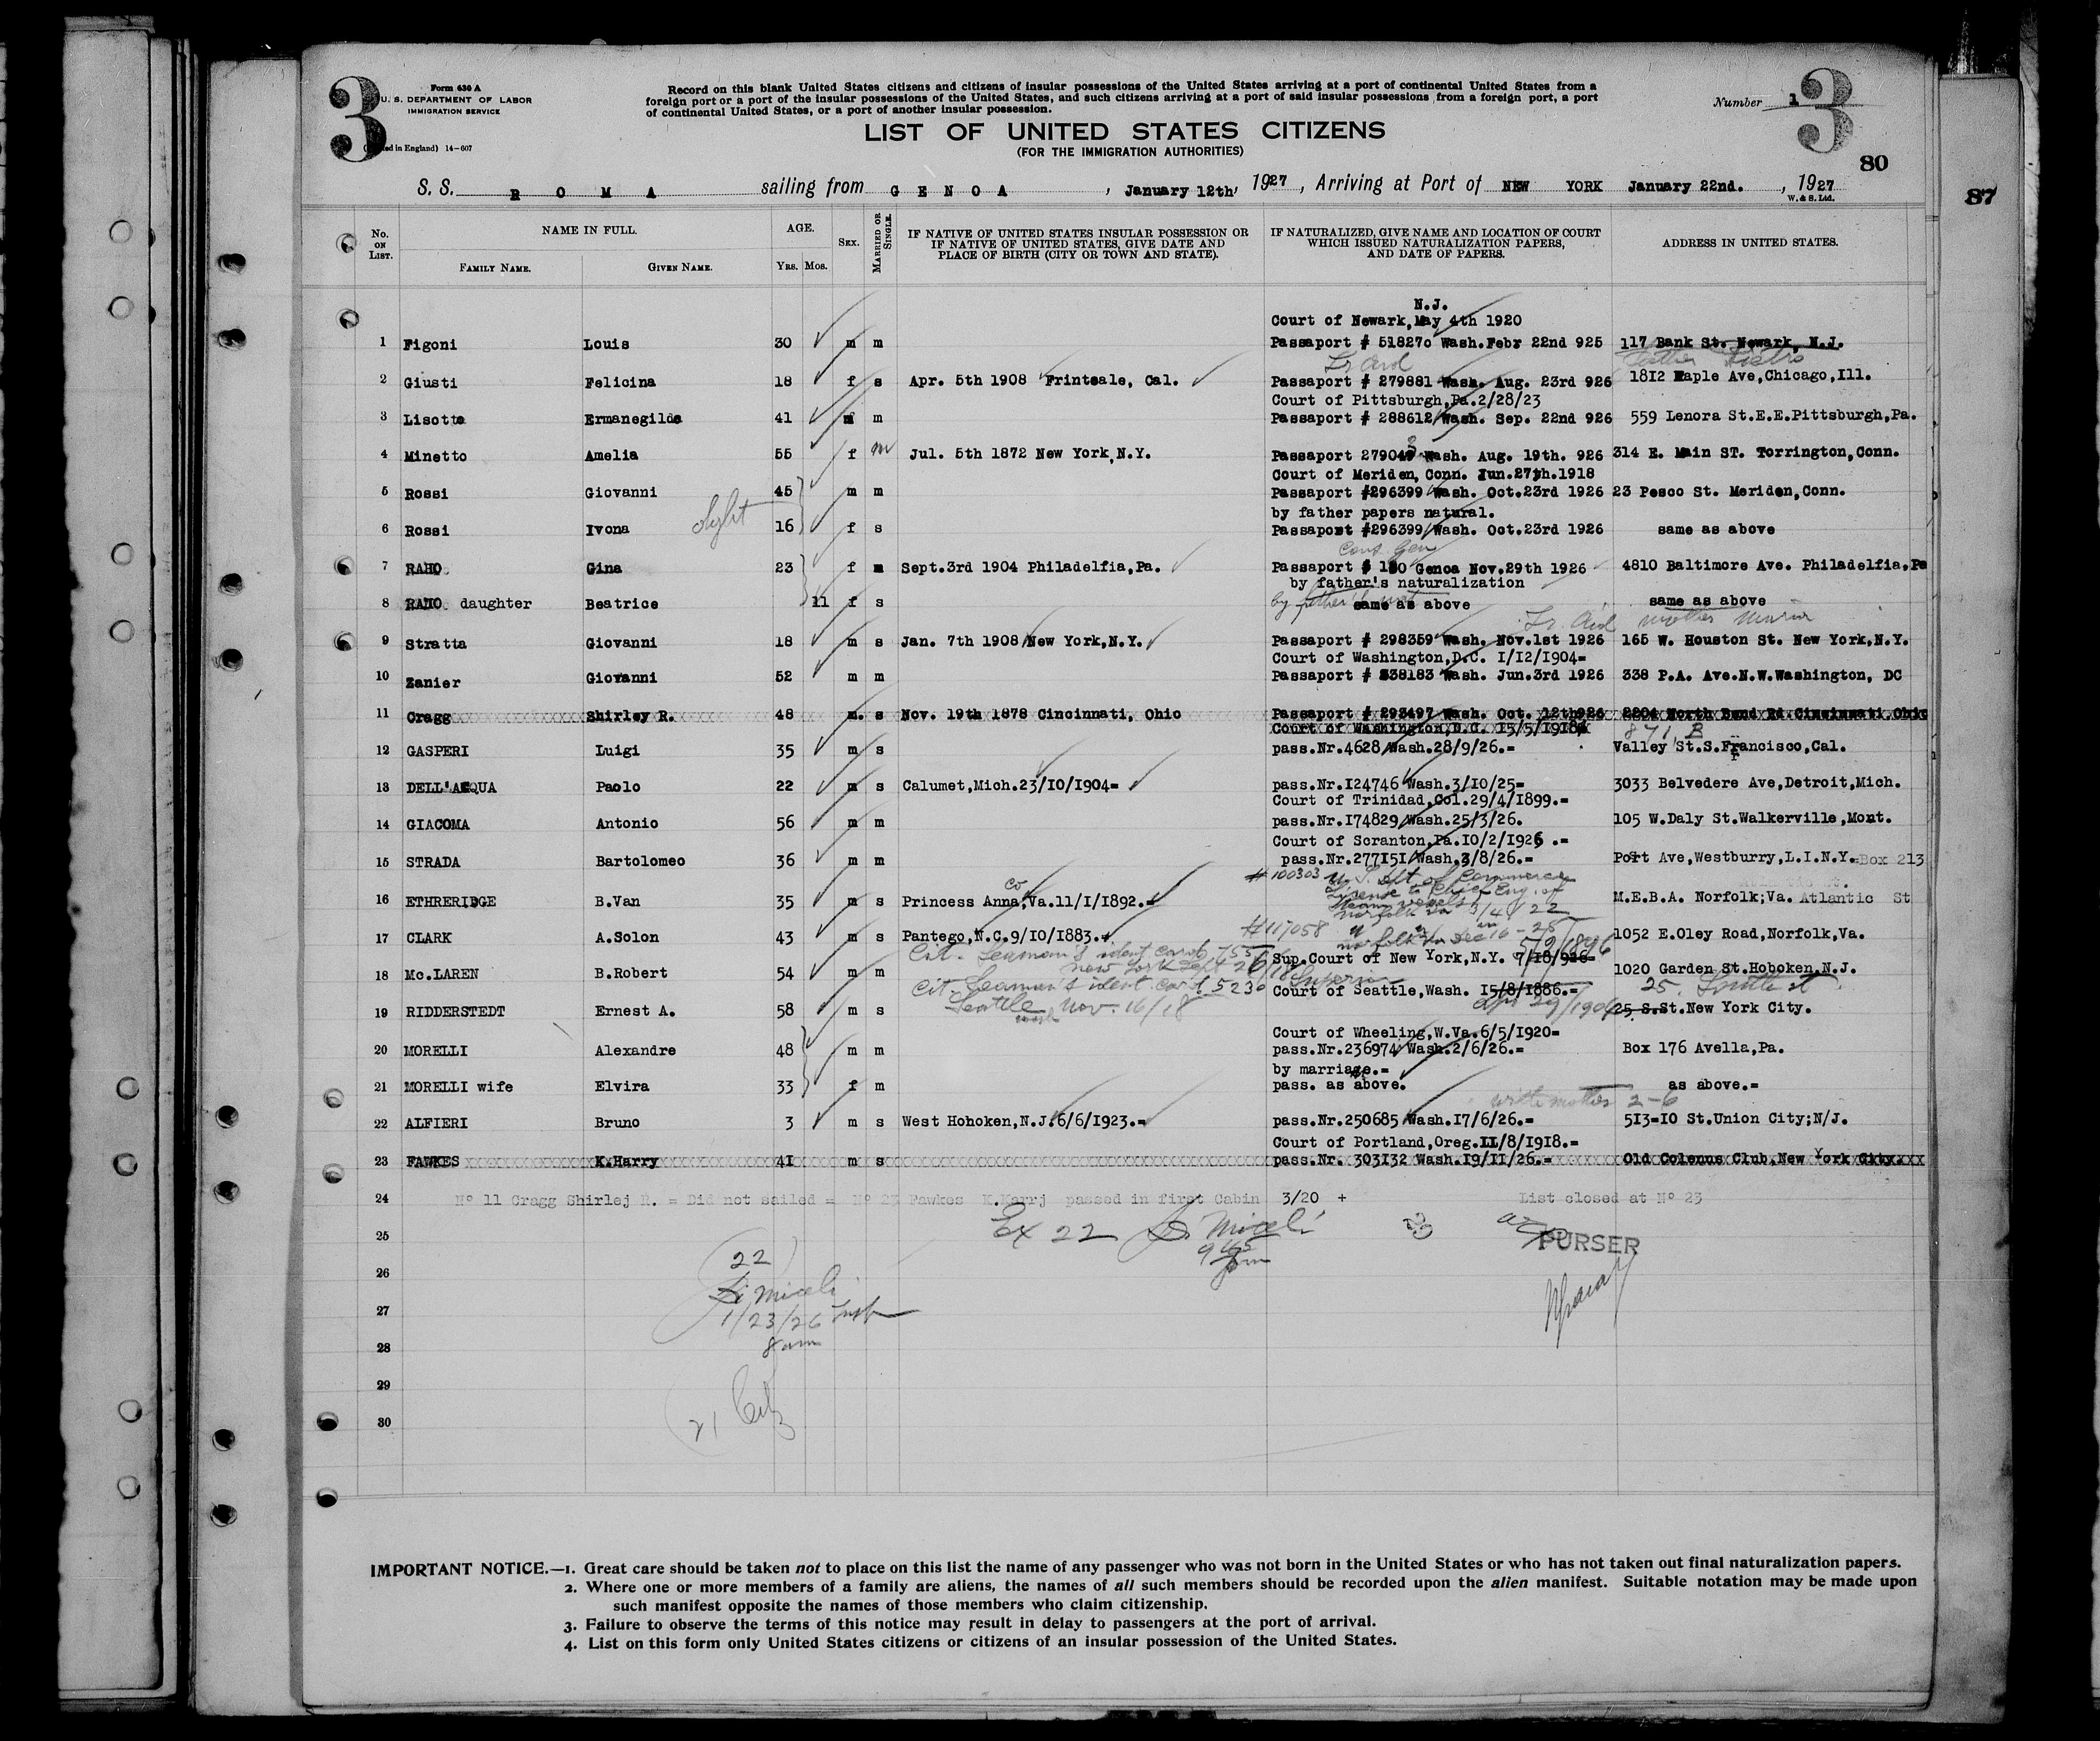 3
Form 630 A
U. S. DEPARTMENT OF LABOR
IMMIGRATION SERVICE
in England) 14-607
Record on this blank United States citizens and citizens of insular possessions of the United States arriving at a port of continental United States from a
foreign port or a port of the insular possessions of the United States, and such citizens arriving at a port of said insular possessions from a foreign port, a port
of continental United States, or a port of another insular possession.
Number 1
3
80
87
LIST OF UNITED STATES CITIZENS
(FOR THE IMMIGRATION AUTHORITIES)
S. S. R O M A sailing from G E N O A , January 12th, 1927, Arriving at Port of NEW YORK January 22nd. , 1927
W. & S. Ltd.
No. ON LIST. NAME IN FULL. AGE. SEX. MARRIED OR SINGLE. IF NATIVE OF UNITED STATES INSULAR POSSESSION OR IF NATIVE OF UNITED STATES, GIVE DATE AND PLACE OF BIRTH (CITY OR TOWN AND STATE). IF NATURALIZED, GIVE NAME AND LOCATION OF COURT WHICH ISSUED NATURALIZATION PAPERS, AND DATE OF PAPERS. ADDRESS IN UNITED STATES.
FAMILY NAME. GIVEN NAME. YRS. MOS.
N.J.
Court of Newark, May 4th 1920
1 Figoni Louis 30 m m Passaport # 518270 Wash. Febr 22nd 925 117 Bank St. Newark, N.J.
Father Pietro
2 Giusti Felicina 18 f s Apr. 5th 1908 Frintsale, Cal. Passaport # 279881 Wash. Aug. 23rd 926 1812 Maple Ave, Chicago, Ill.
Court of Pittsburgh, Pa. 2/28/23
3 Lisotto Ermanegildo 41 m m Passaport # 288612 Wash. Sep. 22nd 926 559 Lenora St. E.E. Pittsburgh, Pa.
4 Minetto Amelia 55 f m Jul. 5th 1872 New York, N.Y. Passaport Wash. Aug. 19th. 926 314 E. Main ST. Torrington, Conn.
Court of Meriden, Conn. Jun. 27th. 1918
5 Rossi Giovanni 45 m m Passaport #296399 Wash. Oct. 23rd 1926 23 Pesco St. Meriden, Conn.
by father papers natural.
6 Rossi Ivona 16 f s Passaport #296399 Wash. Oct. 23rd 1926 same as above
Cons. Gen
7 Gina 23 f m Sept. 3rd 1904 Philadelfia, Pa. Passaport Genoa Nov. 29th 1926 4810 Baltimore Ave. Philadelfia, Pa
by father's naturalization
8 daughter Beatrice 11 f s same as above same as above
mother Maria
9 Stratta Giovanni 18 m s Jan. 7th 1908 New York, N.Y. Passaport # 298359 Wash. Nov. 1st 1926 165 W. Houston St. New York, N.Y.
Court of Washington, D.C. I/I2/I904=
10 Zanier Giovanni 52 m m Passaport # 338183 Wash. Jun. 3rd 1926 338 P.A. Ave. N.W. Washington, DC
11 Cragg Shirley R. 48 m. s Nov. 19th 1878 Cincinnati, Ohio Passaport # 293497 Wash. Oct. 12th 926 2204 North Bend Rd. Cincinnati. Ohio
Court of Washington, D.C. I5/5/I918
871 B
12 GASPERI Luigi 35 m s pass. Nr. 4628 Wash. 28/9/26.= Valley St. S. Francisco, Cal.
13 DELL'ACQUA Paolo 22 m s Calumet, Mich. 23/I0/I904= pass. Nr. I24746 Wash. 3/I0/25= 3033 Belvedere Ave, Detroit, Mich.
Court of Trinidad, Col. 29/4/I899.=
14 GIACOMA Antonio 56 m m pass. Nr. I74829 Wash. 25/3/26. I05 W. Daly St. Walkerville, Mont.
Court of Scranton, Pa. I0/2/I926 .=
15 STRADA Bartolomeo 36 m m pass. Nr. 277I5I Wash. 3/8/26.= Post Ave, Westburry, L.I.N.Y. =Box 213
# 100303 U. S. Dpt of Commerce
License to Chief Eng. of
Steam vessels
Norfolk Va 3/4/22
16 ETHRERIDGE B. Van 35 m s Princess Anna, Co Va. II/I/I892.= M.E.B.A. Norfolk; Va. Atlantic St
#117058
Norfolk Va Dec 16-25
17 CLARK A. Solon 43 m s Pantego, N.C. 9/I0/I883. I052 E. Oley Road, Norfolk, Va.
Cit. Seaman's ident card 755
New York Sept 26/18
18 Mc. LAREN B. Robert 54 m m Sup. Court of New York, N.Y. 7/I8/926= I020 Garden St. Hoboken. N.J.
Cit. Seaman's ident. card 5230
Seattle wash Nov. 16/18
Superior
Court of Seattle, Wash. I5/8/I886.=
Apr 29/1904
25. South St
19 RIDDERSTEDT Ernest A. 58 m s 25 S. St. New York City.
Court of Wheeling, W. Va. 6/5/I920=
20 MORELLI Alexandre 48 m m pass. Nr. 236974 Wash. 2/6/26.= Box I76 Avella, Pa.
by marriage.=
21 MORELLI wife Elvira 33 f m pass. as above. as above.=
write mother 2-6
22 ALFIERI Bruno 3 m s West Hohoken, N.J. 6/6/I923.= pass. Nr. 250685 Wash. I7/6/26.= 5I3=I0 St. Union City; N/J.
Court of Portland, Oreg. II/8/I918.=
23 FAWKES K. Harry 4I m s pass. Nr. 303I32 Wash. I9/II/26.= Old Colenus Club, New York City.
24 Nº 11 Cragg Shirlej R. = Did not sailed = Nº 23 Fawkes K. Harrj passed in first Cabin 3/20 + List closed at Nº 23
25 Ex 22 Miceli 23 PURSER
9 45 am
26 22
Miceli
27 1/23/26 Insp
28 8 am
29
30
21 Citz
IMPORTANT NOTICE.—1. Great care should be taken not to place on this list the name of any passenger who was not born in the United States or who has not taken out final naturalization papers.
2. Where one or more members of a family are aliens, the names of all such members should be recorded upon the alien manifest. Suitable notation may be made upon
such manifest opposite the names of those members who claim citizenship.
3. Failure to observe the terms of this notice may result in delay to passengers at the port of arrival.
4. List on this form only United States citizens or citizens of an insular possession of the United States.